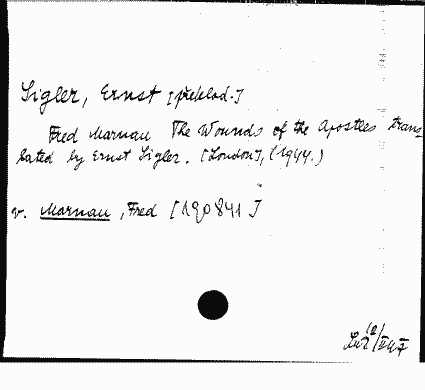 Sigler, Ernst [překlad.]
Fred Marnau The Wounds of the Apostles trans=
lated by Ernst Sigler. [London], (1944.)
v. Marnau, Fred [190841]